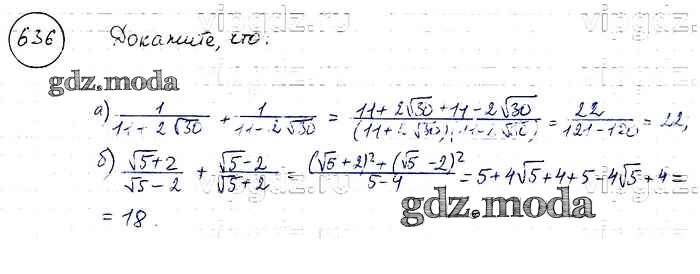 636 Докажите, что:
gdz.moda
а) 1/(11+2√30) + 1/(11-2√30) = (11+2√30+11-2√30)/((11+2√30)(11-2√30)) = 22/(121-120) = 22,
б) (√5+2)/(√5-2) + (√5-2)/(√5+2) = ((√5+2)²+(√5-2)²)/(5-4) = 5+4√5+4+5-4√5+4=
= 18.
gdz.moda